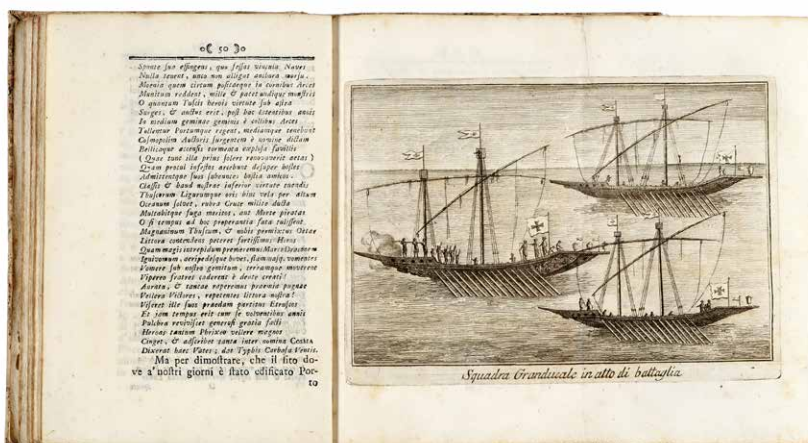 50
Sponte suo effingent, quo fessas vincula Naves
Nulla tenent, unco non alligat anchora morsu.
Moenia quem circum positaeque in cornibus Arces
Munitum reddent, mille & patet undique monstris
O quantum Tuscis herois virtute sub astra
Surges, & auctus erit, post hac latentibus annis
In medium geminae geminis è collibus Arces
Tollentur Portumque regent, mediumque tenebunt
Cosmopolim Auctoris surgentem è nomine dictam
Bellicaque accensis tormenta explosa favillis
( Quae tunc illa prius solers renovaverit aetas )
Quam procul infestos arcebunt desuper hostes
Admittentque suos subeuntes hostia amicos.
Classis & haud nostrae inferior virtute carendis
Thuscorum Ligurumque ovis bine vela per altum
Oceanum solvet, rubra Cruce milite ducta
Multabitque fuga meritos, aut Morte piratas
O si tempus ad hoc properantia fata tulissent.
Magnanimum Thuscum, & nobis permixtus Oetae
Littora contendens peteret fortissimus Heros
Quam magis intrepidum premeremus Marte Draconem
Ignivomum, aeripedesque boves, flammasq; vomentes
Vomere sub nostro gemitum, terramque moverent
Vipereo fratres caderent è dente creati!
Aurata, & tantae caperemus praemia pugnae
Vellera Victores, repetentes littora nostra!
Viseret ille suos praedam partitus Etruscos
Et jam tempus erit cum se volventibus annis
Pulchra reviviscet generosi gratia facti
Heroas tantum Phrixeo vellere magnos
Cinget, & adscribet tanta inter nomina Cosmum
Dixerat haec Vates; dat Typhis Carbasa Ventis.
Ma per dimostrare, che il sito do-
ve a' nostri giorni è stato edificato Por-
to
Squadra Granducale in atto di battaglia